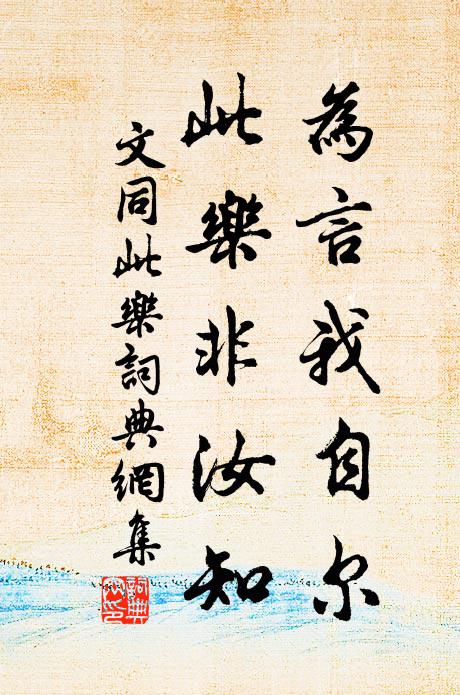 為言我自尔
此樂非汝知
文同此樂詞典網集